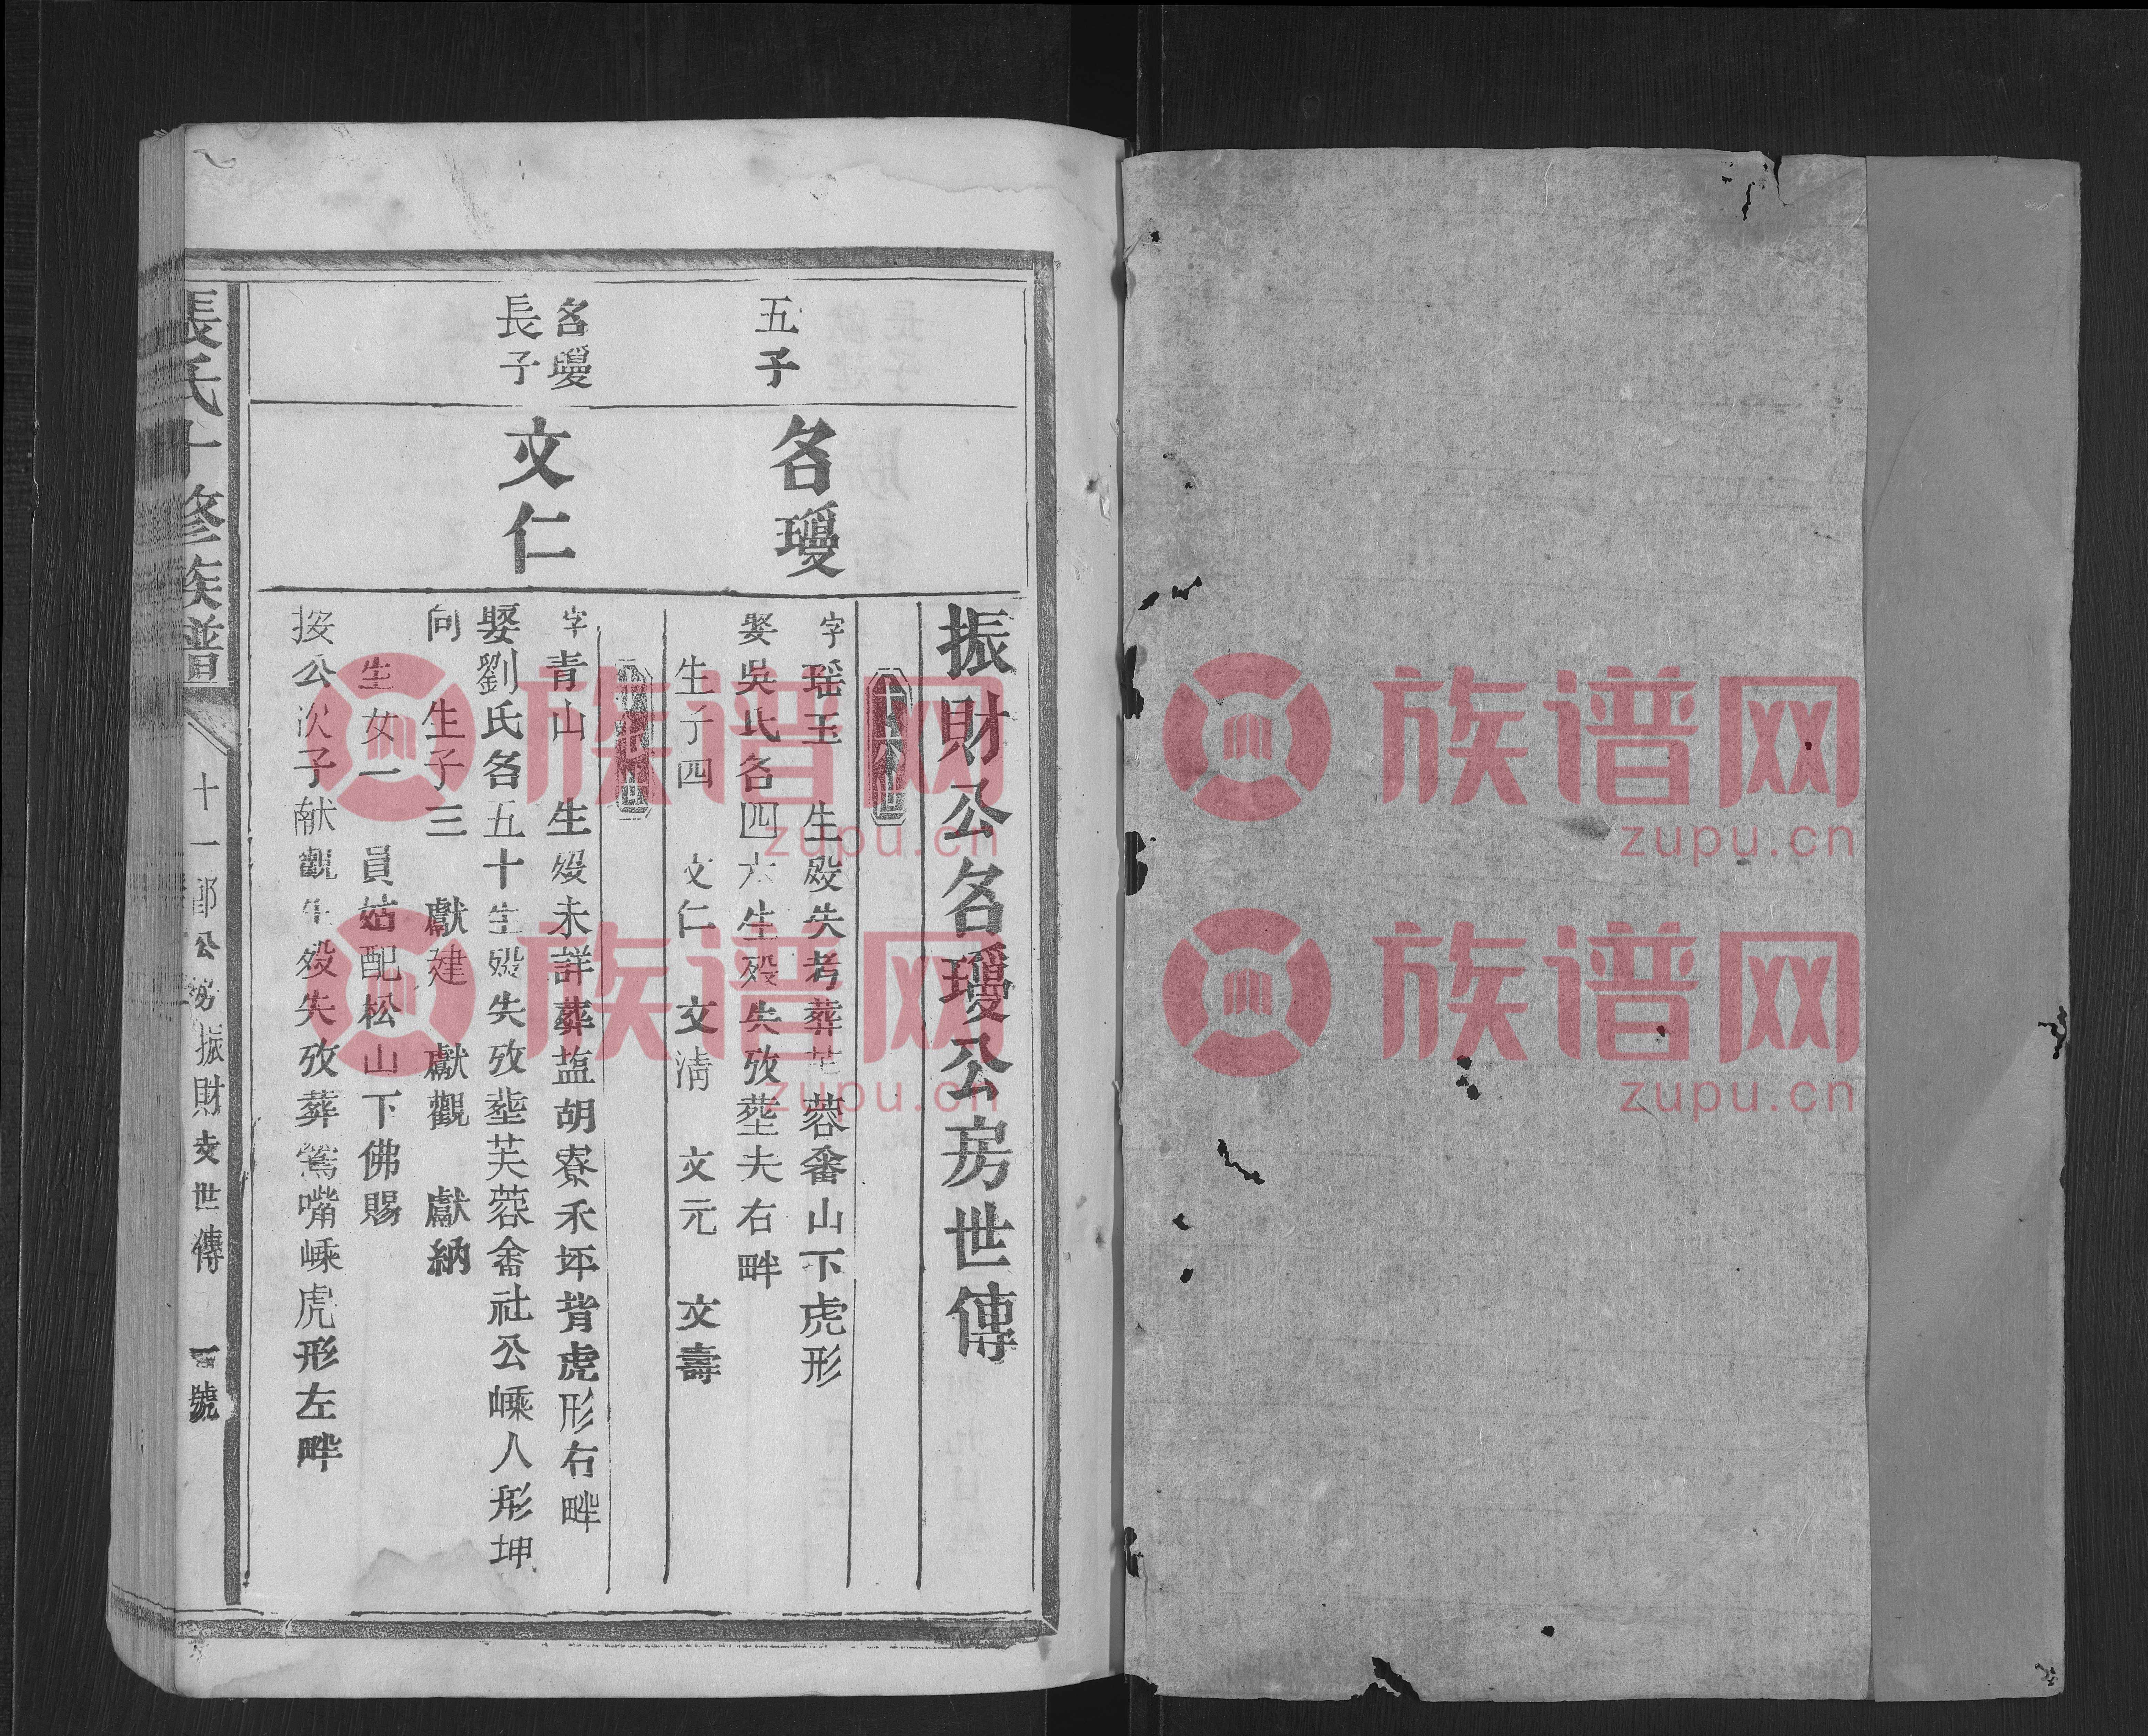 振財公名瓊公房世傳
五子
名瓊
字瑶玉　生殁失考葬芙蓉畲山下虎形
娶吳氏名四六生殁失攷塟夫右畔
生子四　文仁　文清　文元　文壽
名瓊
長子
文仁
字青山　生殁未詳葬塩胡寮禾坪背虎形右畔
娶劉氏名五十生殁失攷塟芙蓉畲社公嵊人形坤
向　生子三　獻建　獻觀　獻納
生女一　員姑配松山下佛賜
按公次子献觀生殁失攷葬鶯嘴嵊虎形左畔
張氏十修族譜
十一郎公房振財支世傳
一號
族谱网
zupu.cn
族谱网
zupu.cn
族谱网
zupu.cn
族谱网
zupu.cn